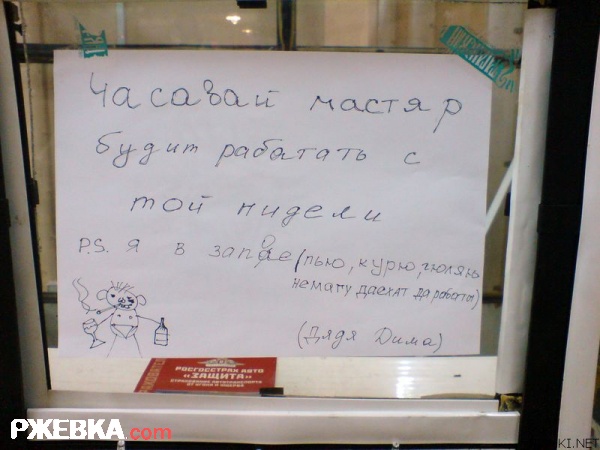 Часавай мастяр
будит рабатать с
той нидели
P.S. я в запое (пью, курю, гюляю
немагу даехат да работы)
(Дядя Дима)
РОСГОССТРАХ АВТО
«ЗАЩИТА»
РЖЕВКА.com
KI.NET